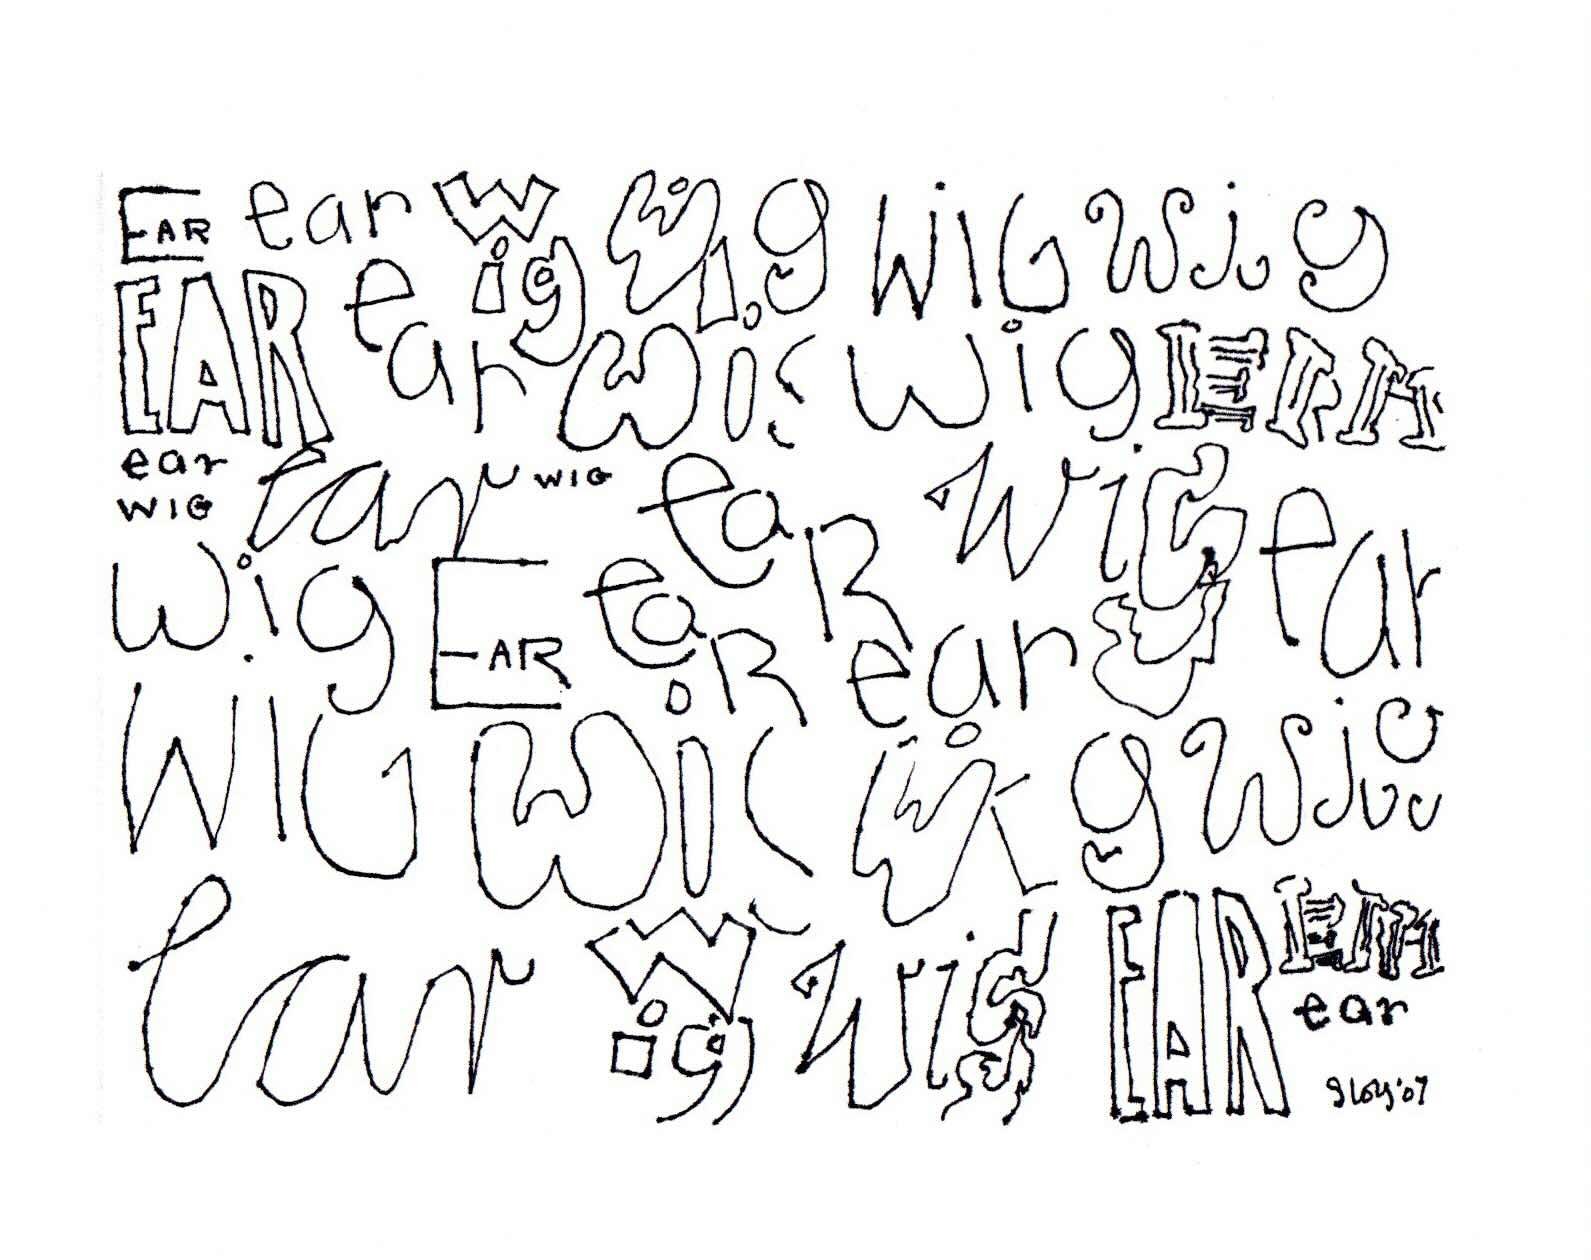 EAR ear Wig Wig WIG Wig
EAR ear Wig Wig EAR
ear ear WIG ear Wig ear
WIG
Wig EAR eaR ear
WIG Wig Wig Wig
ear Wig Wig EAR EAR
ear